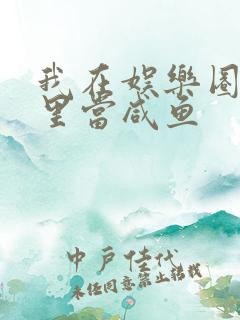 我在娱樂圈
里當咸鱼
中戶佳代
未经同意禁止转载